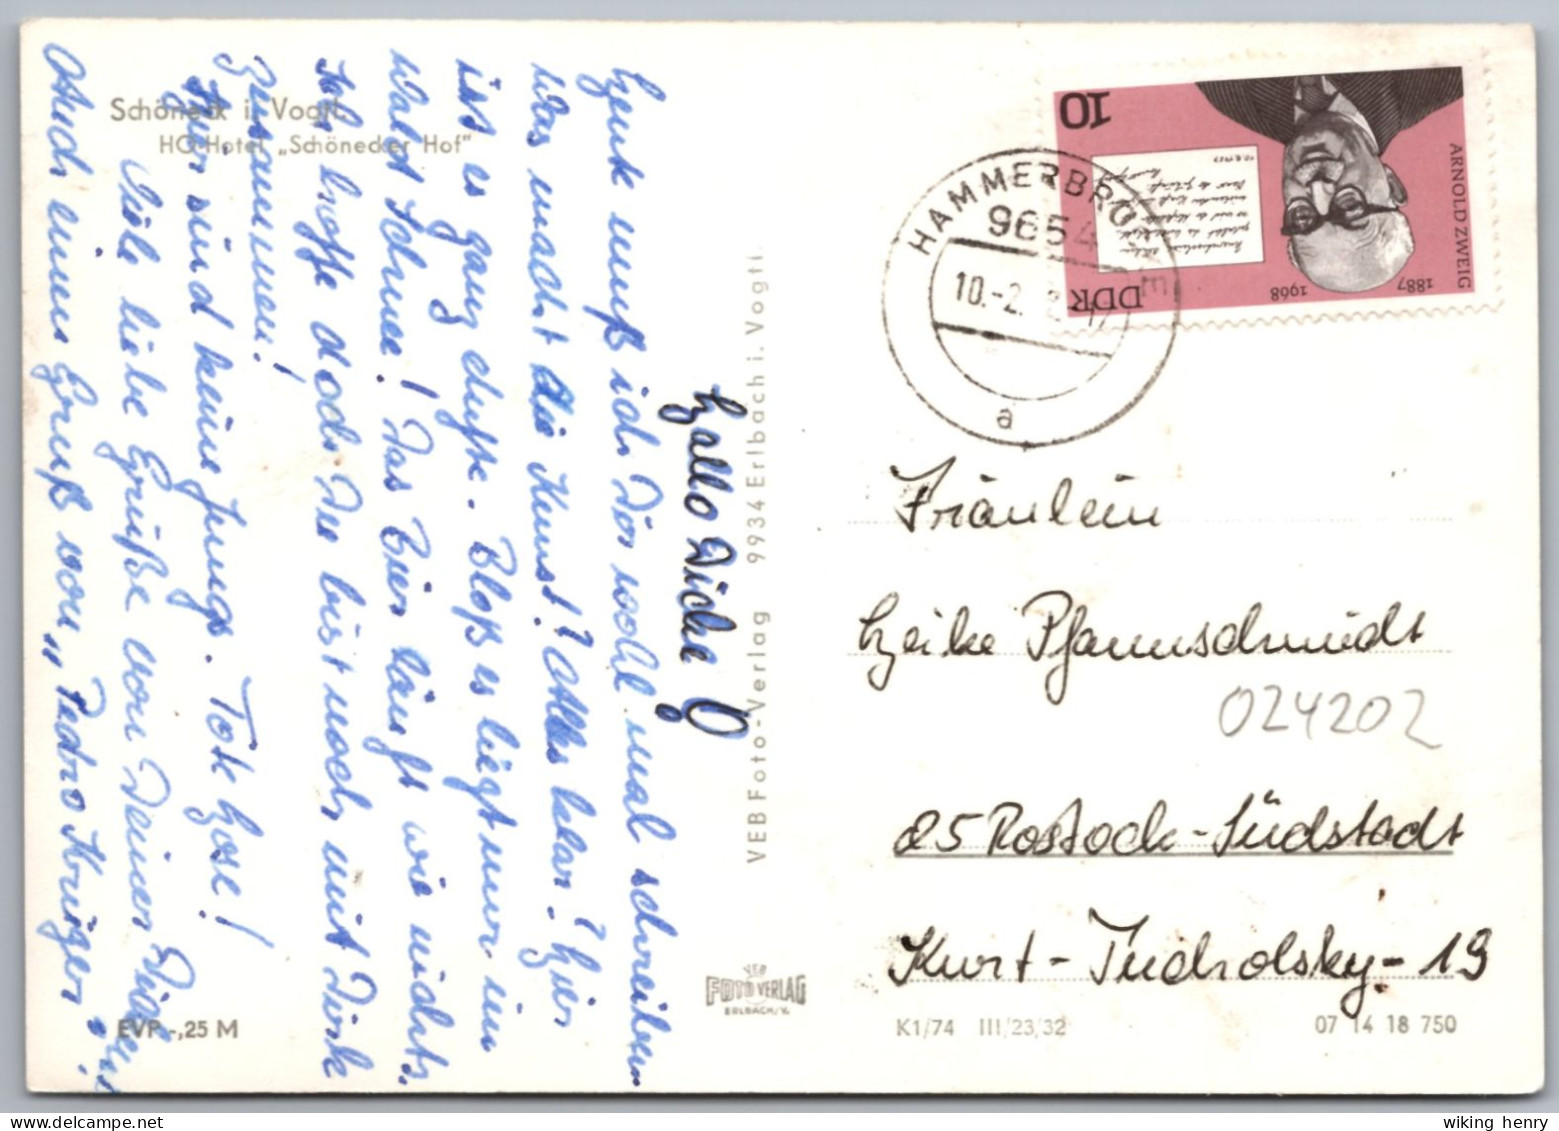 Schöneck i. Vogtl.
HO-Hotel „Schönecker Hof"
Hallo Dicke!
Heute muß ich Dir wohl mal schreiben
Was macht die Kunst? Alles klar? Hier
ist es ganz dufte. Bloß es liegt nur im
Wald Schnee! Das Bier läuft wie nichts.
Ich hoffe doch Du bist noch mit Dirk
zusammen!
Hier sind keine Jungs. Tote Hose!
Viele liebe Grüße von Deiner
Auch einen Gruß von „Pedro Krüger"
EVP -,25 M
VEB Foto-Verlag 9934 Erlbach i. Vogtl.
VEB
FOTO VERLAG
ERLBACH/V.
ARNOLD ZWEIG
1887 1968
DDR
10
HAMMERBRÜ
9654
10.-2.
a
Fräulein
Heike Pfannschmidt
024202
25 Rostock-Südstadt
Kurt-Tucholsky-19
K1/74 III/23/32
07 14 18 750
wiking henry